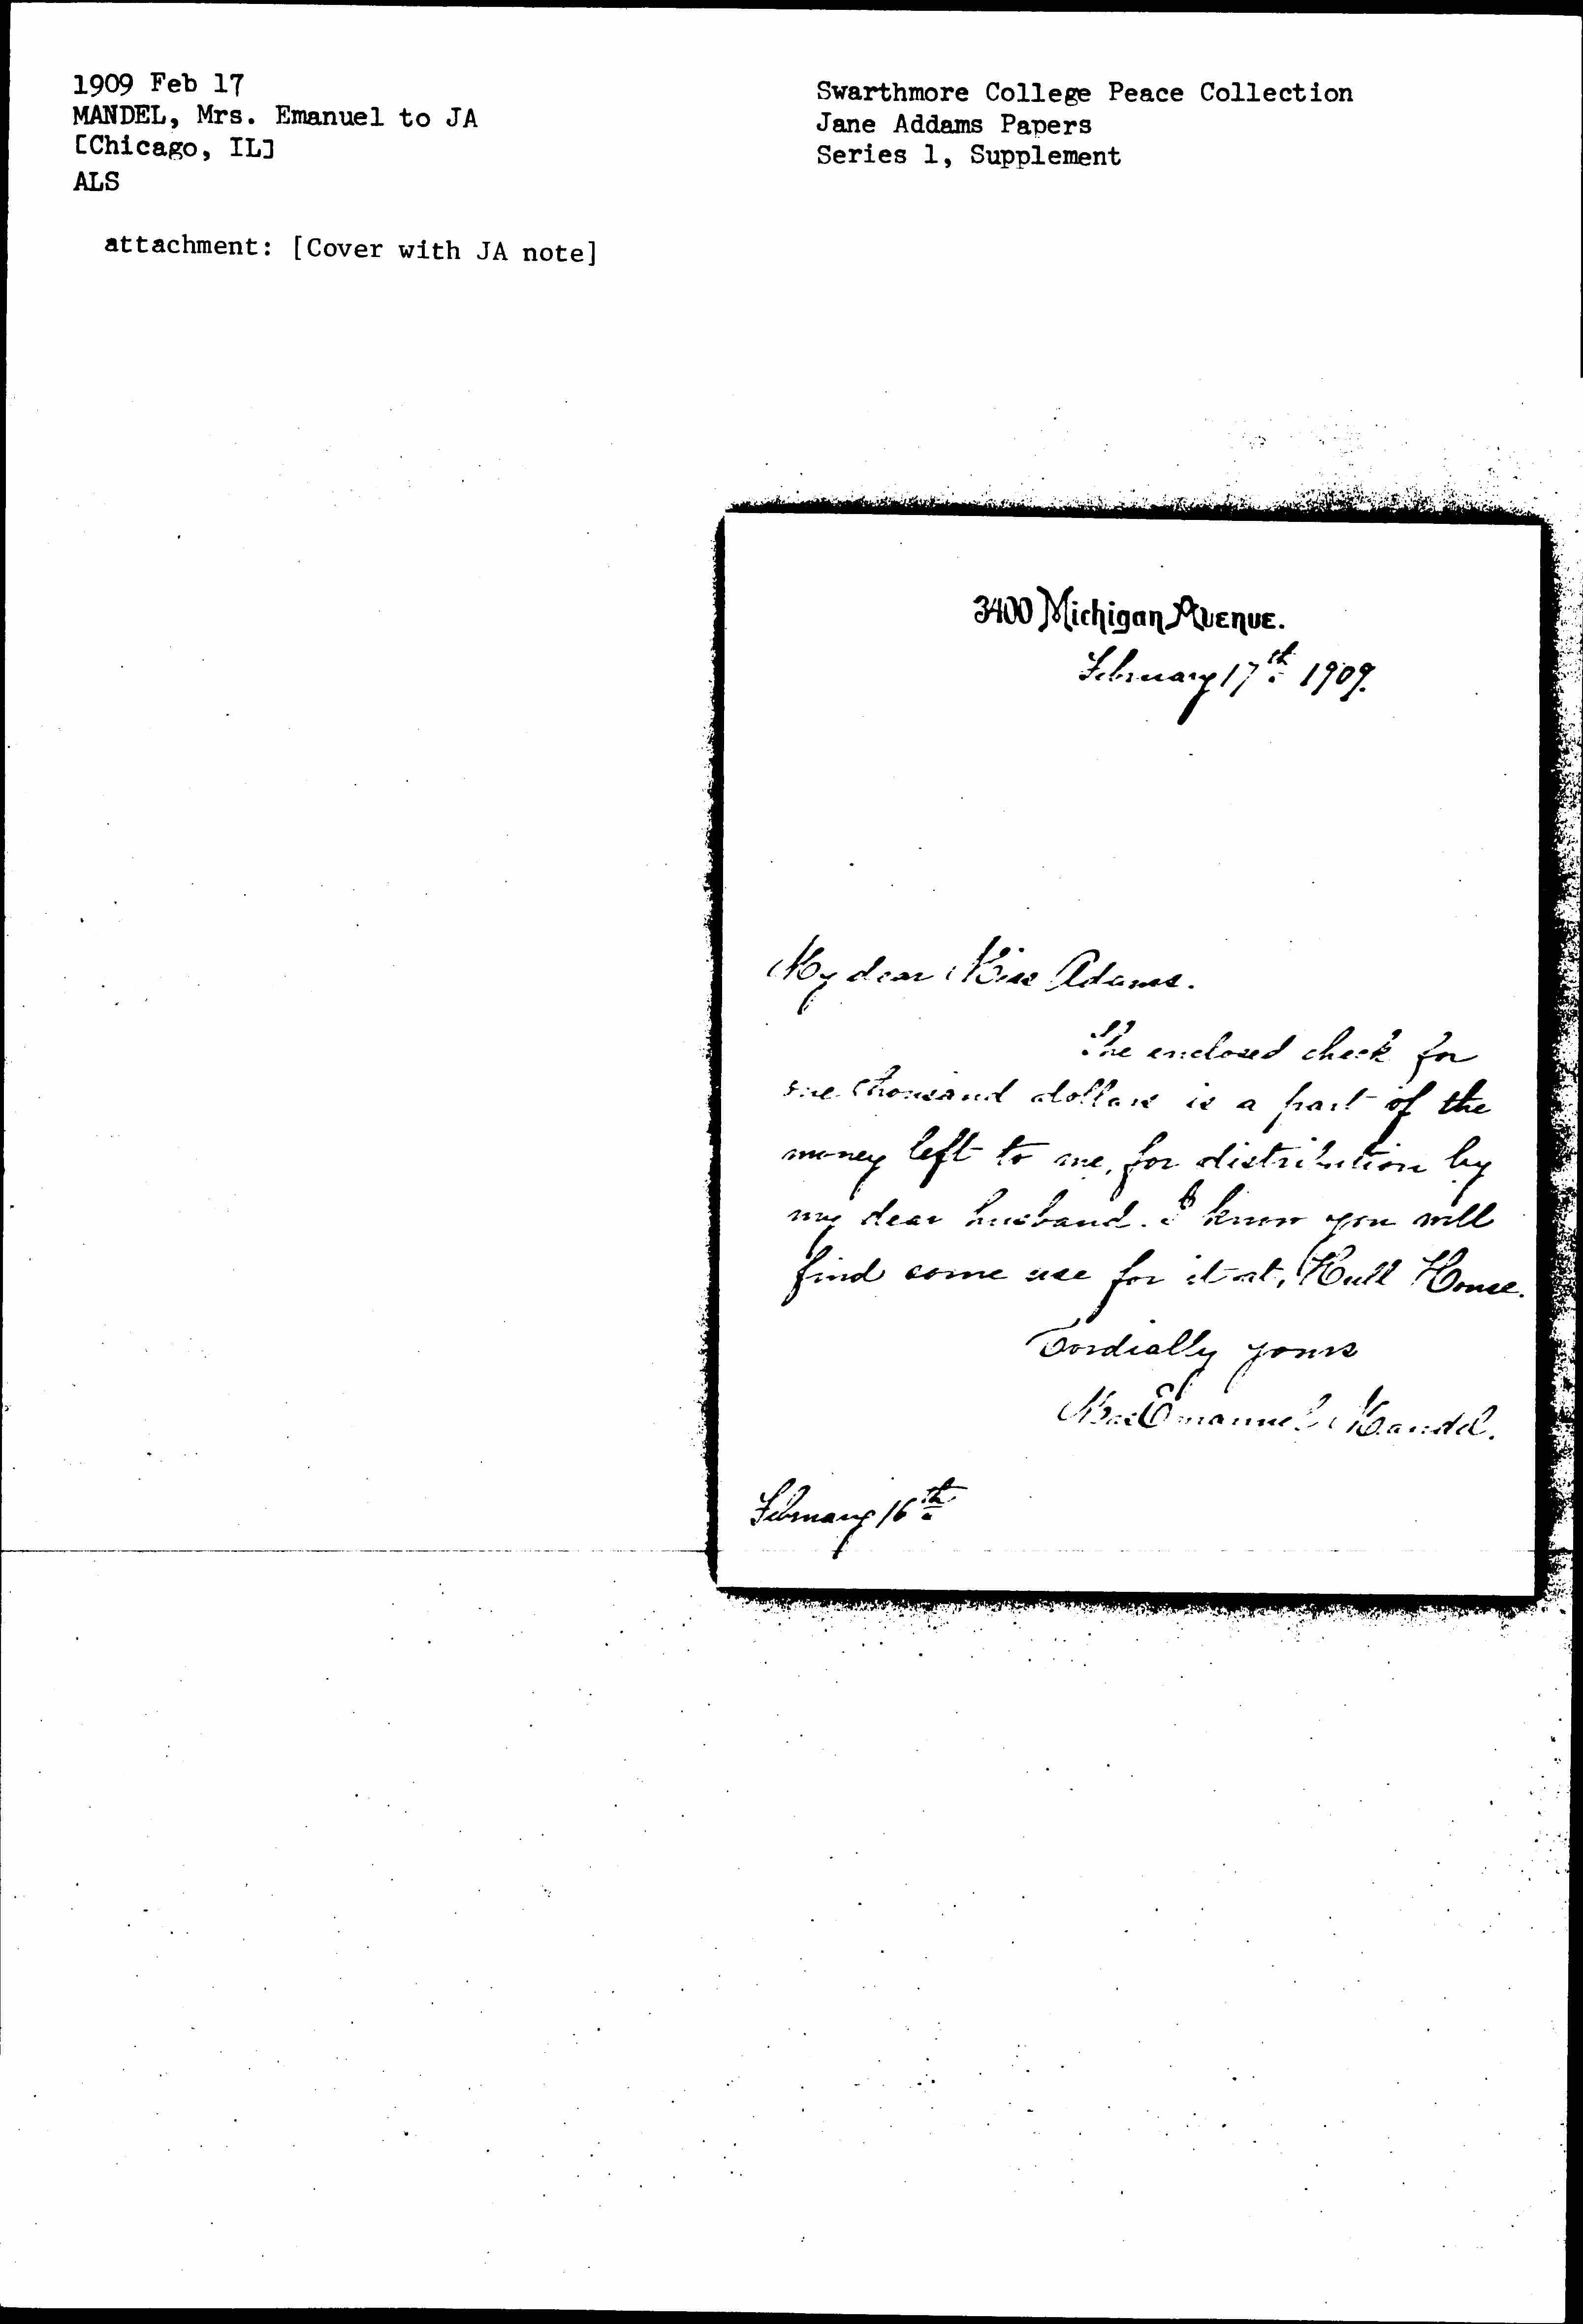 1909 Feb 17
MANDEL, Mrs. Emanuel to JA
[Chicago, IL]
ALS
attachment: [Cover with JA note]
Swarthmore College Peace Collection
Jane Addams Papers
Series 1, Supplement
3400 Michigan Avenue.
February 17th 1909.
My dear Miss Adams.
The enclosed check for
one thousand dollars is a part of the
money left to me, for distribution by
my dear husband. I know you will
find some use for it at, Hull House.
Cordially yours
Mrs Emanuel Mandel.
February 16th